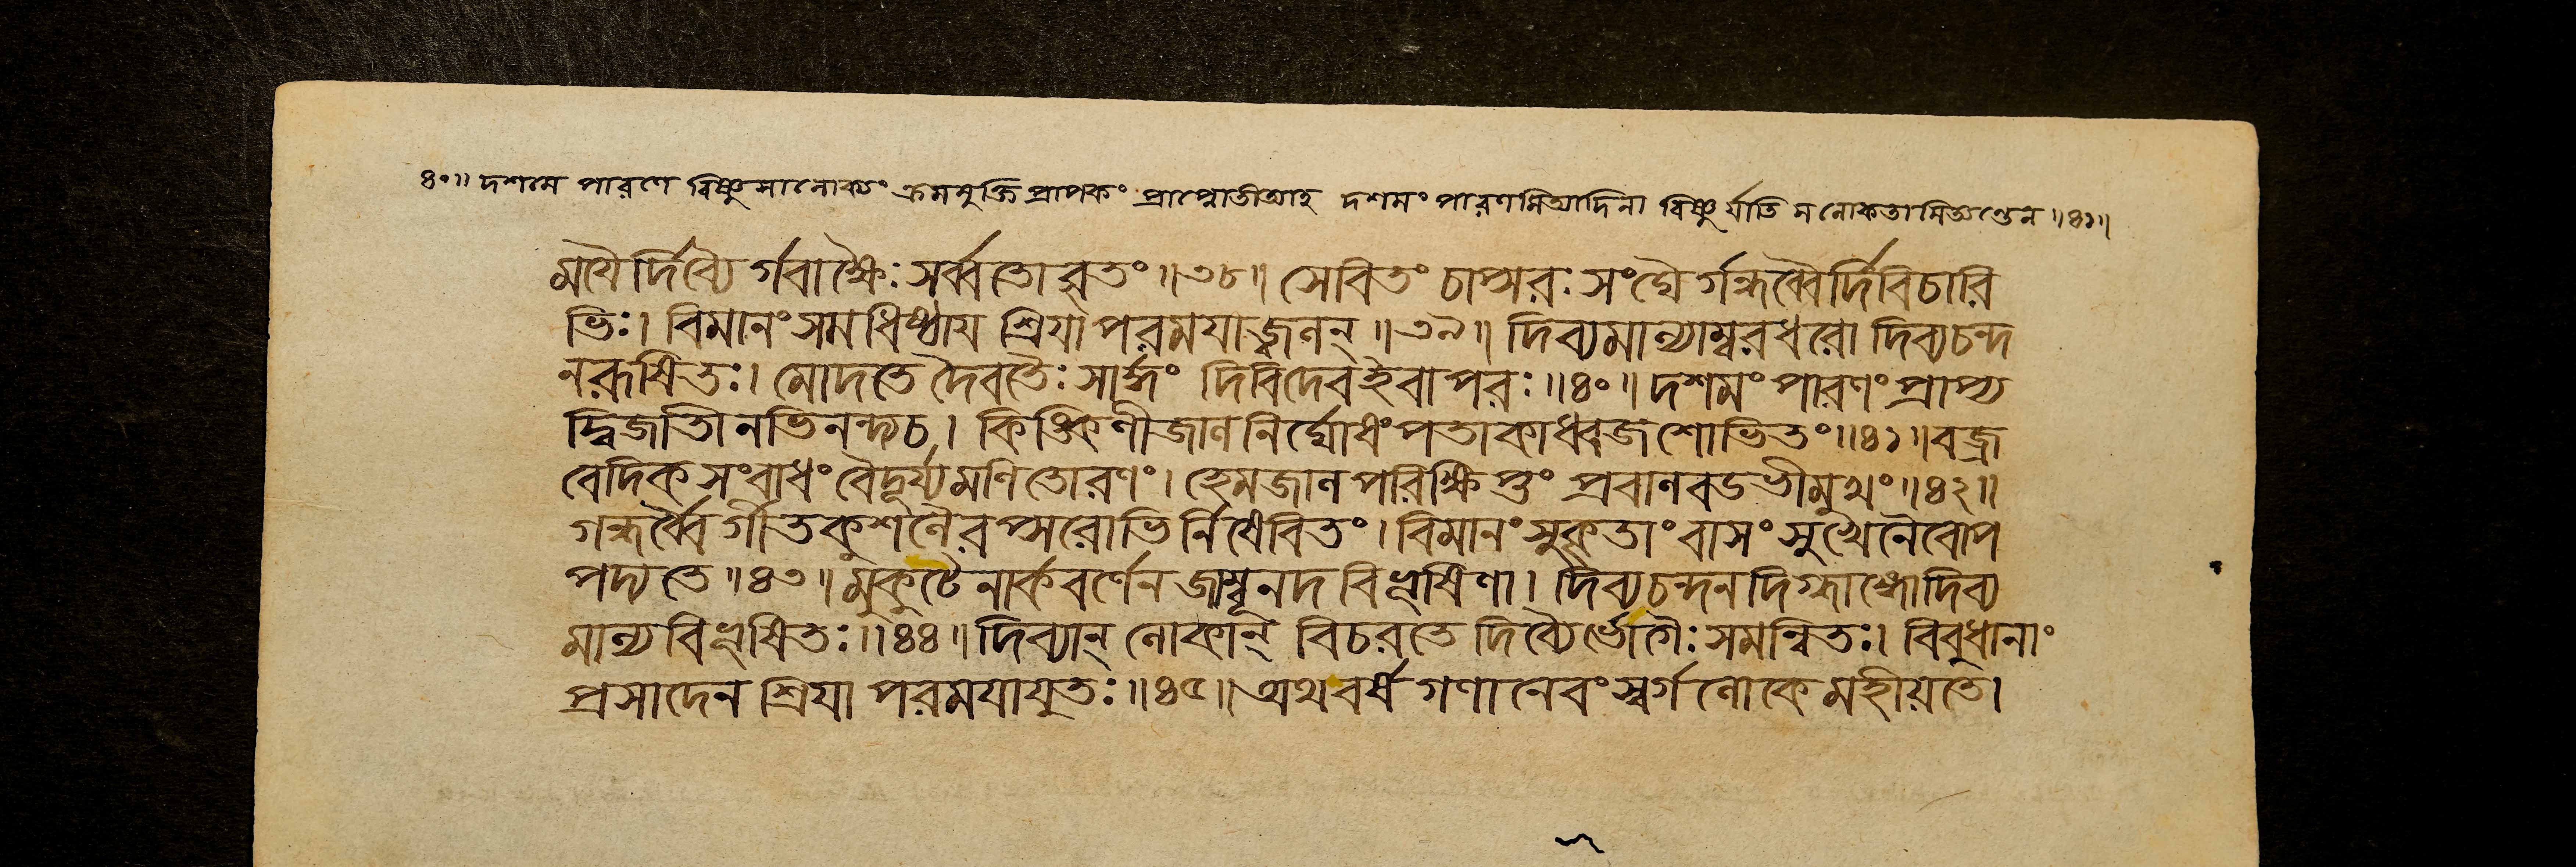 ৪০॥ দশমে পারণে বিষ্ণুসালোক্যং ক্রমমুক্তিপ্রাপকং প্রাপ্নোতীত্যাহ দশমং পারণমিত্যাদিনা বিষ্ণুর্যাতি সলোকতামিত্যন্তেন ॥৪১॥
ময়ৈর্দিব্যৈর্গবাক্ষৈঃ সর্ব্বতো বৃতং ॥৩৮॥ সেবিতং চাপ্সরঃসংঘৈর্গন্ধর্ব্বৈর্দিবিচারি
ভিঃ। বিমানং সমধিষ্ঠায় শ্রিয়া পরময়া জ্বলন্ ॥৩৯॥ দিব্যমাল্যাম্বরধরো দিব্যচন্দ
নরূষিতঃ। মোদতে দৈবতৈঃ সার্দ্ধং দিবি দেব ইবাপরঃ ॥৪০॥ দশমং পারণং প্রাপ্য
দ্বিজাতীনভিনন্দ্য চ। কিঙ্কিণীজালনির্ঘোষং পতাকাধ্বজশোভিতং ॥৪১॥ বজ্র
বেদিকসংবাধং বৈদূর্য্যমণিতোরণং। হেমজালপরিক্ষিপ্তং প্রবালবডভীমুখং ॥৪২॥
গন্ধর্ব্বৈর্গীতকুশলৈরপ্সরোভির্নিষেবিতং। বিমানং সুকৃতাং বাসং সুখেনৈবোপ
পদ্যতে ॥৪৩॥ মুকুটেনার্কবর্ণেন জাম্বূনদবিভূষিণা। দিব্যচন্দনদিগ্ধাঙ্গো দিব্য
মাল্যবিভূষিতঃ ॥৪৪॥ দিব্যান্ লোকান্ বিচরতে দিব্যৈর্ভোগৈঃ সমন্বিতঃ। বিবুধানাং
প্রসাদেন শ্রিয়া পরময়া যুতঃ ॥৪৫॥ অথ বর্ষগণানেবং স্বর্গলোকে মহীয়তে।